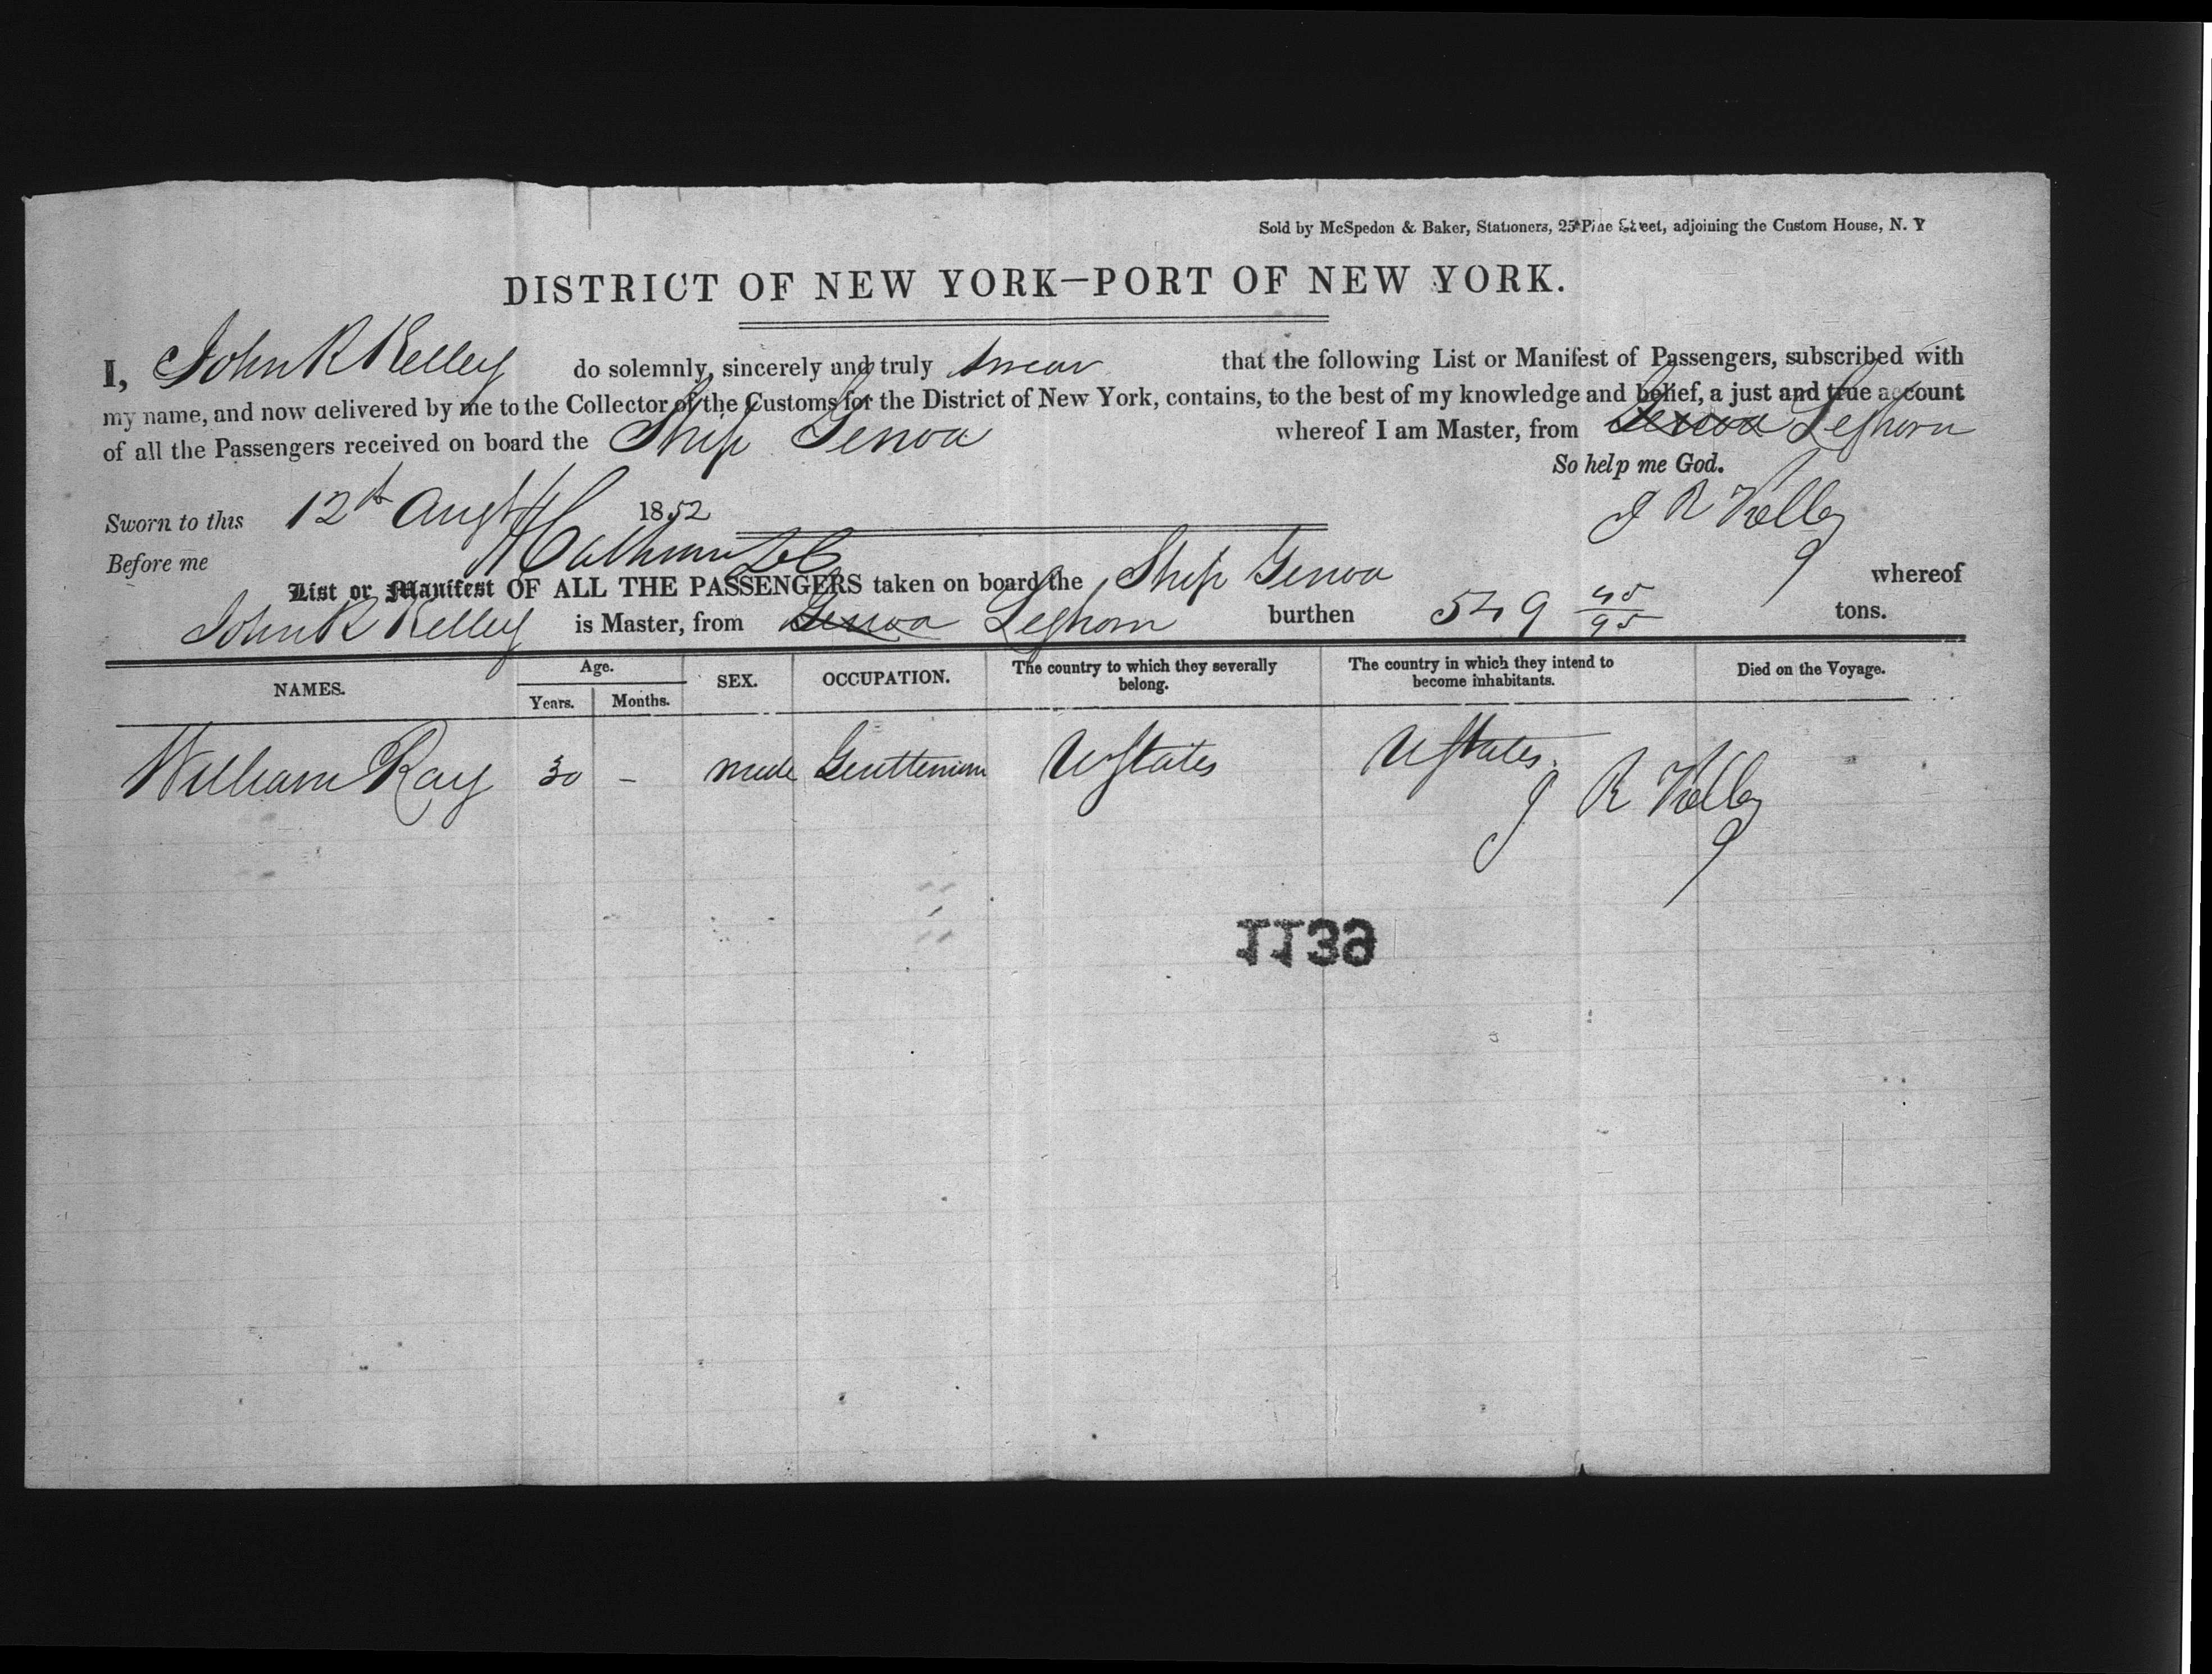 Sold by McSpedon & Baker, Stationers, 25 Pine Street, adjoining the Custom House, N. Y
DISTRICT OF NEW YORK—PORT OF NEW YORK.
I, John R Kelley do solemnly, sincerely and truly swear that the following List or Manifest of Passengers, subscribed with
my name, and now delivered by me to the Collector of the Customs for the District of New York, contains, to the best of my knowledge and belief, a just and true account
of all the Passengers received on board the Ship Genoa whereof I am Master, from Genoa Leghorn
So help me God.
Sworn to this 12th Augt 1852
J R Kelley
Before me
List or Manifest OF ALL THE PASSENGERS taken on board the Ship Genoa whereof
John R Kelley is Master, from Genoa Leghorn burthen 549 45/95 tons.
NAMES. Age. Years. Months. SEX. OCCUPATION. The country to which they severally belong. The country in which they intend to become inhabitants. Died on the Voyage.
William Ray 30 – male Gentleman UStates UStates.
J R Kelley
1139